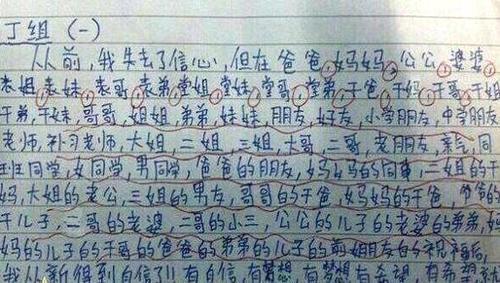 丁组 (一)
从前,我失去了信心,但在爸爸,妈妈,公公,婆婆,
表姐,表妹,表哥,表弟,堂姐,堂妹,堂哥,堂弟,干爸,干妈,干哥,干姐
干弟,干妹,哥哥,姐姐,弟弟,妹妹,朋友,好友,小学朋友,中学朋友
老师,补习老师,大姐,二姐,三姐,大哥,二哥,老朋友,亲戚,同
班同学,女同学,男同学,爸爸的朋友,妈妈的同事,二姐的干
妈,大姐的老公,三姐的男友,哥哥的干爸,妈妈的干爸,爷爷的
干儿子,二哥的老婆,二哥的小三,公公的儿子的老婆的弟弟,妈
妈的儿子的干哥的爸爸的弟弟的儿子的前女朋友的祝福后,
我从新得到自信了!!有自信,有梦想,有梦想有希望,有希望就